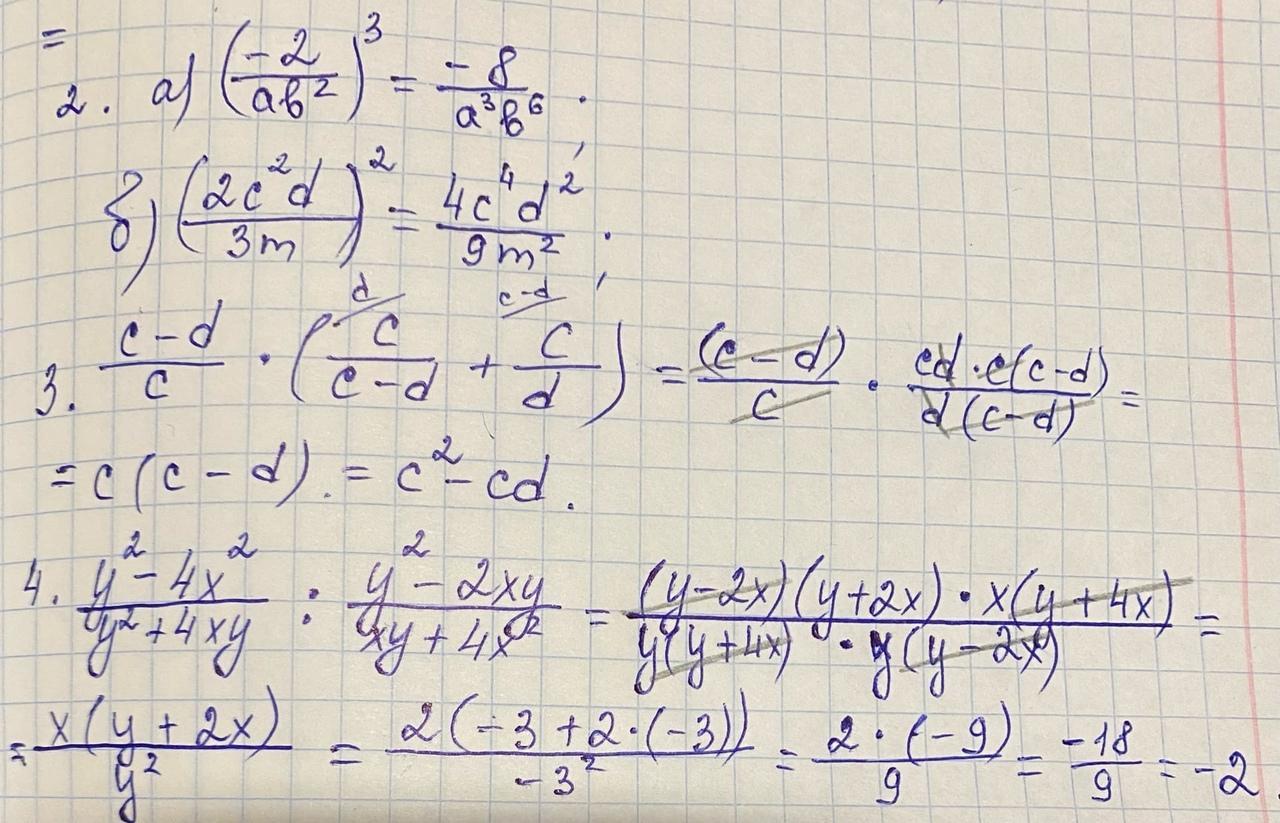 =
2. а) (-2/ab²)³ = -8/a³b⁶ ;
б) (2c²d/3m)² = 4c⁴d²/9m² ;
3. (c-d)/c · (c/(c-d) + c/d) = (c-d)/c · (cd·c(c-d))/(d(c-d)) =
= c(c-d). = c² - cd.
4. (y²-4x²)/(y²+4xy) : (y²-2xy)/(xy+4x²) = ((y-2x)(y+2x)·x(y+4x))/(y(y+4x)·y(y-2x)) =
= x(y+2x)/y² = 2(-3+2·(-3))/-3² = 2·(-9)/9 = -18/9 = -2.